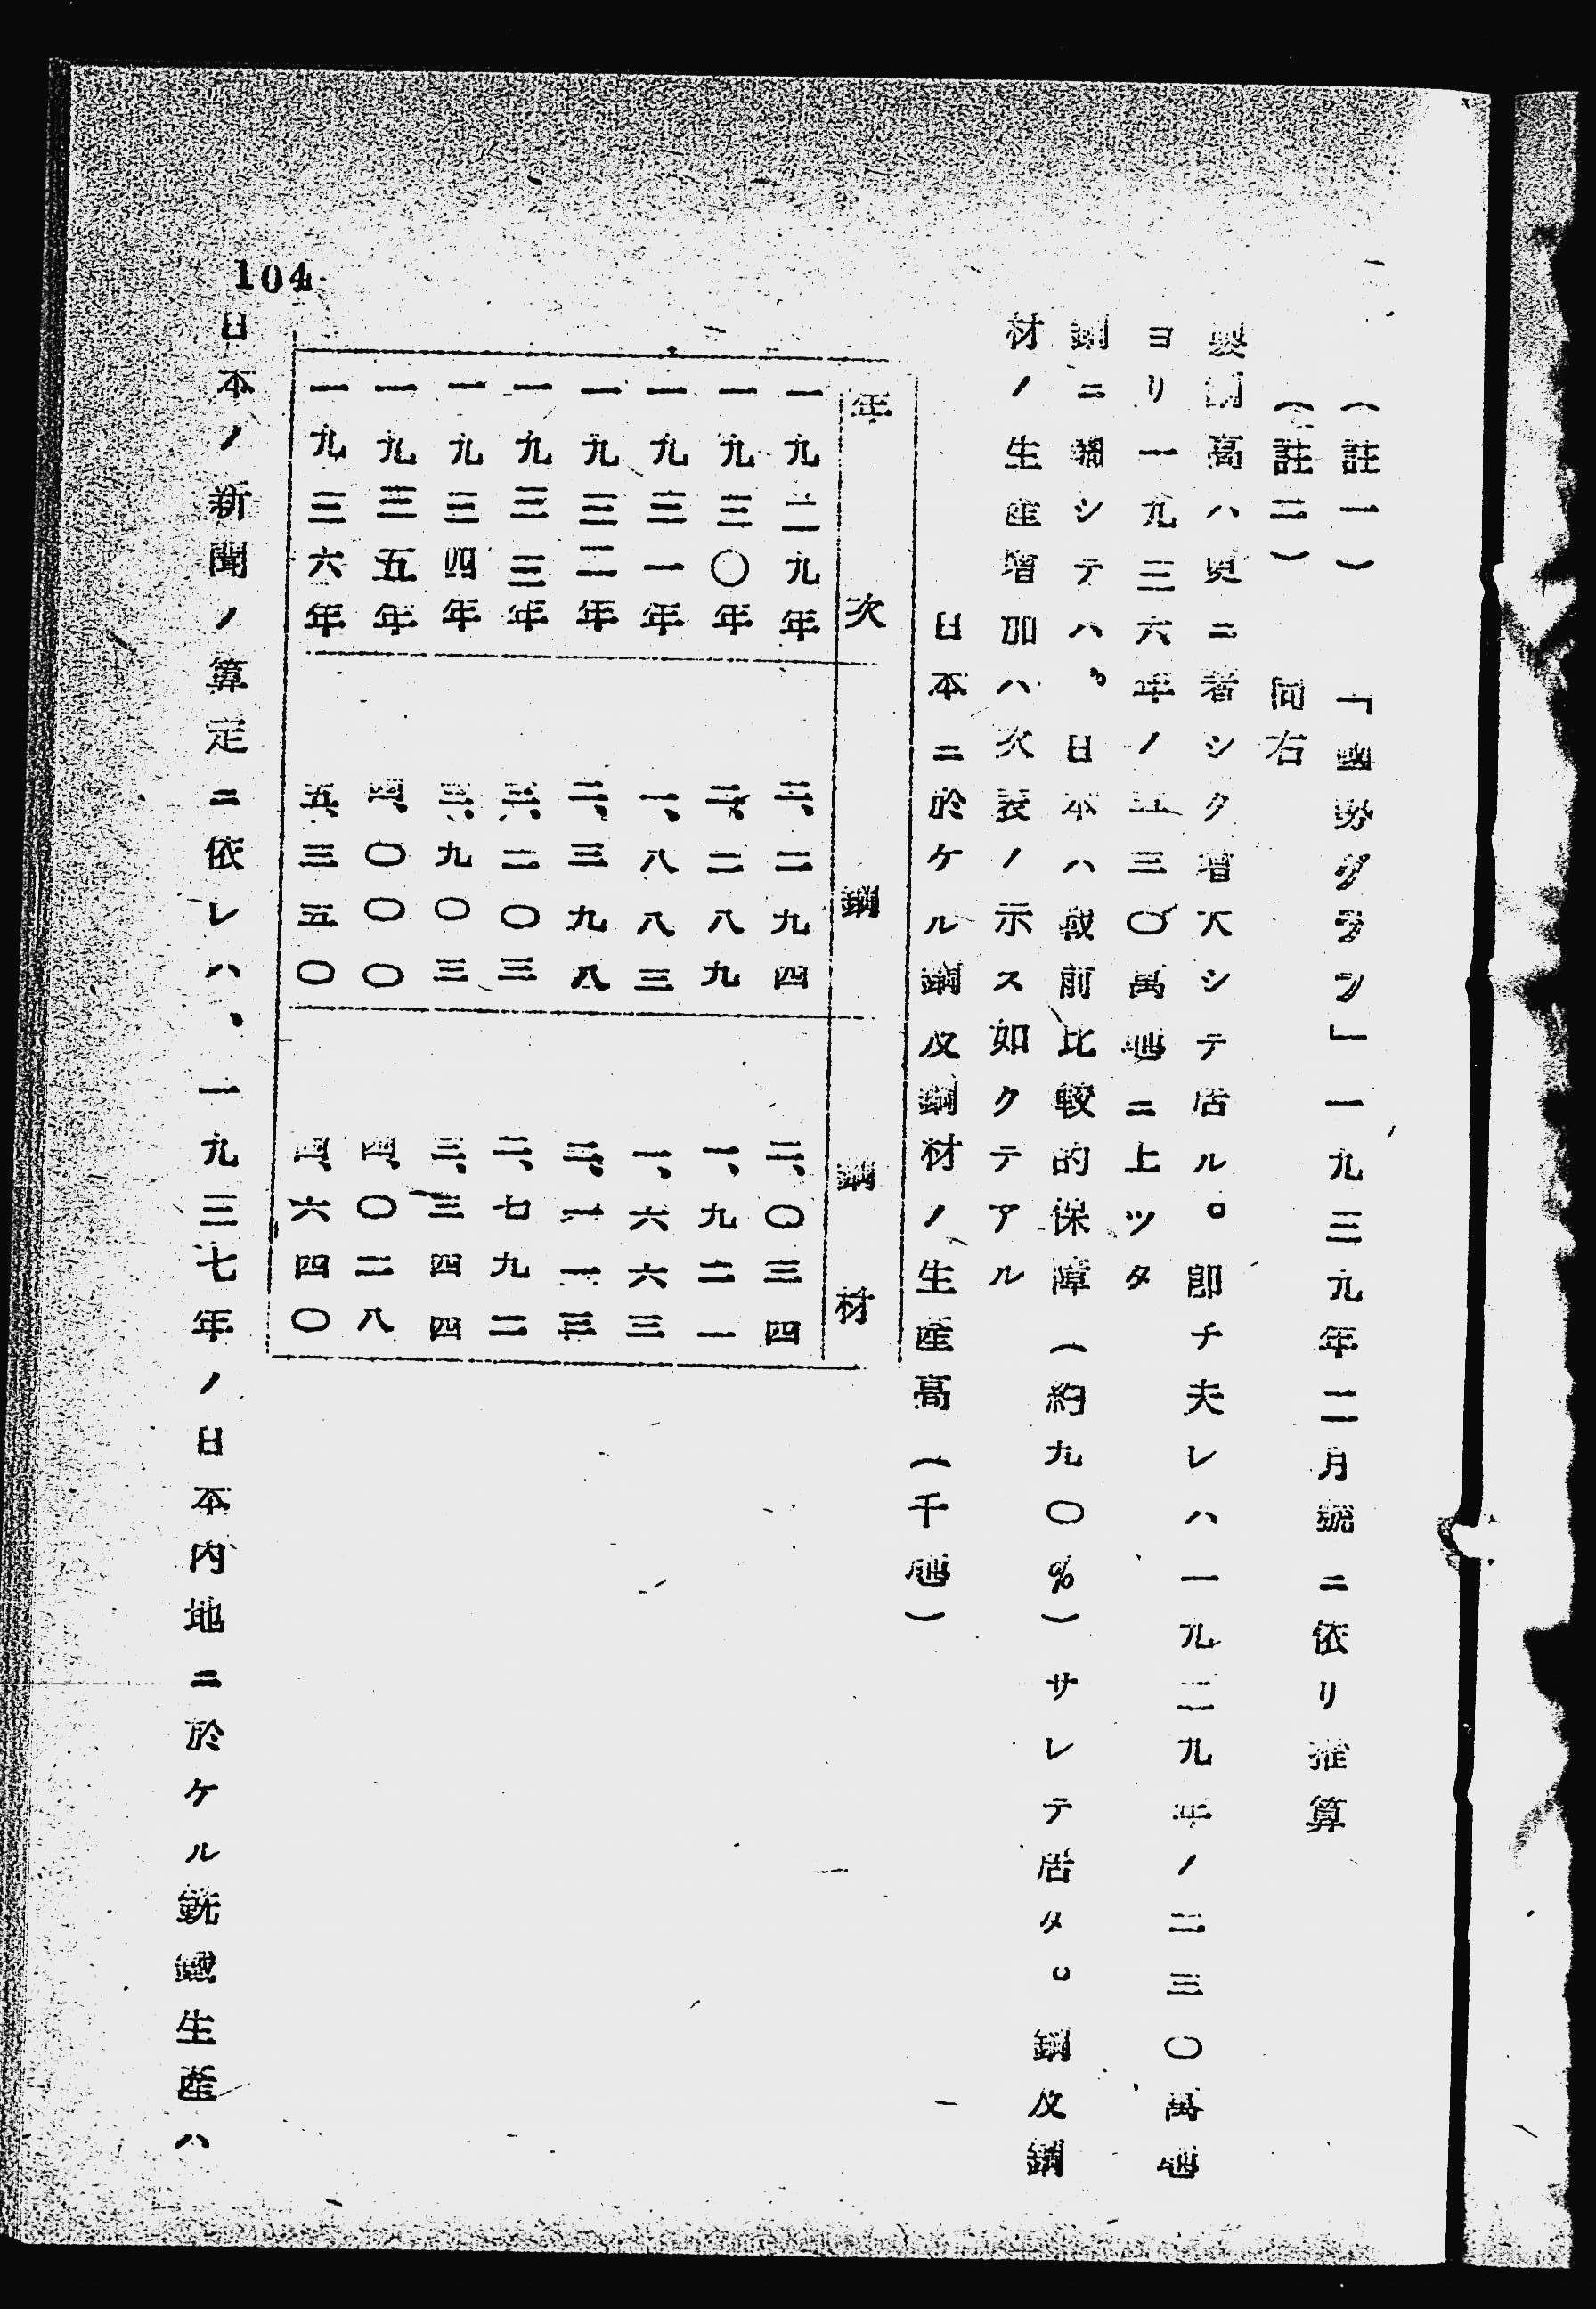 （註一）　「國勢グラフ」一九三九年二月號ニ依リ推算
（註二）　同右
製鋼高ハ更ニ著シク增大シテ居ル。卽チ夫レハ一九二九年ノ二三〇萬瓲
ヨリ一九三六年ノ五三〇萬瓲ニ上ツタ
鋼ニ關シテハ、日本ハ戰前比較的保障（約九〇％）サレテ居タ。鋼及鋼
材ノ生産增加ハ次表ノ示ス如クテアル
日本ニ於ケル鋼及鋼材ノ生産高（千瓲）
年次　鋼　鋼材
一九二九年　二、二九四　二、〇三四
一九三〇年　二、二八九　一、九二一
一九三一年　一、八八三　一、六六三
一九三二年　二、三九八　二、一一三
一九三三年　三、二〇三　二、七九二
一九三四年　三、九〇三　三、三四四
一九三五年　四、〇〇〇　四、〇二八
一九三六年　五、三五〇　四、六四〇
日本ノ新聞ノ算定ニ依レハ、一九三七年ノ日本內地ニ於ケル銑鐵生産ハ
104